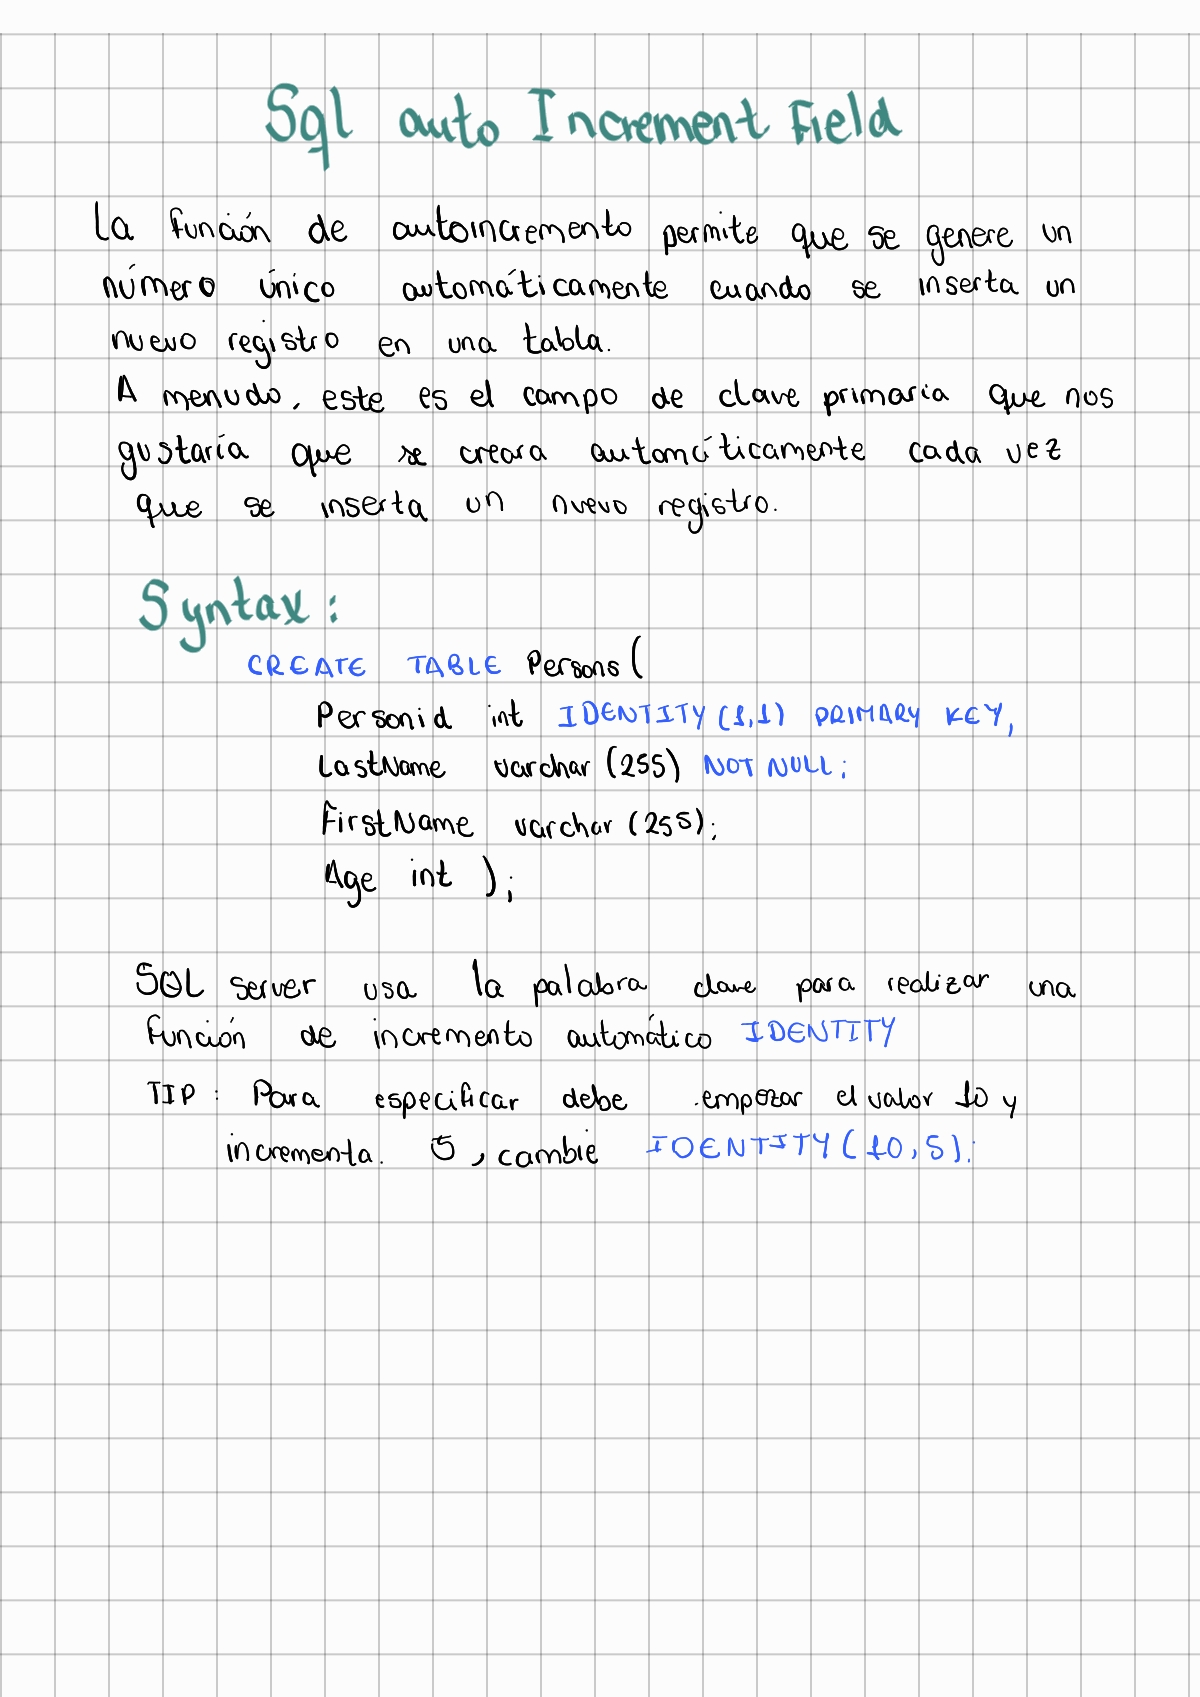 Sql auto Increment Field
La función de autoincremento permite que se genere un
número único automáticamente cuando se inserta un
nuevo registro en una tabla.
A menudo, este es el campo de clave primaria que nos
gustaría que se creara automáticamente cada vez
que se inserta un nuevo registro.
Syntax:
CREATE TABLE Persons(
Personid int IDENTITY(1,1) PRIMARY KEY,
LastName varchar (255) NOT NULL;
FirstName varchar (255);
Age int );
SQL server usa la palabra clave para realizar una
función de incremento automático IDENTITY
TIP: Para especificar debe empezar el valor 10 y
incrementa. 5, cambie IDENTITY(10,5);